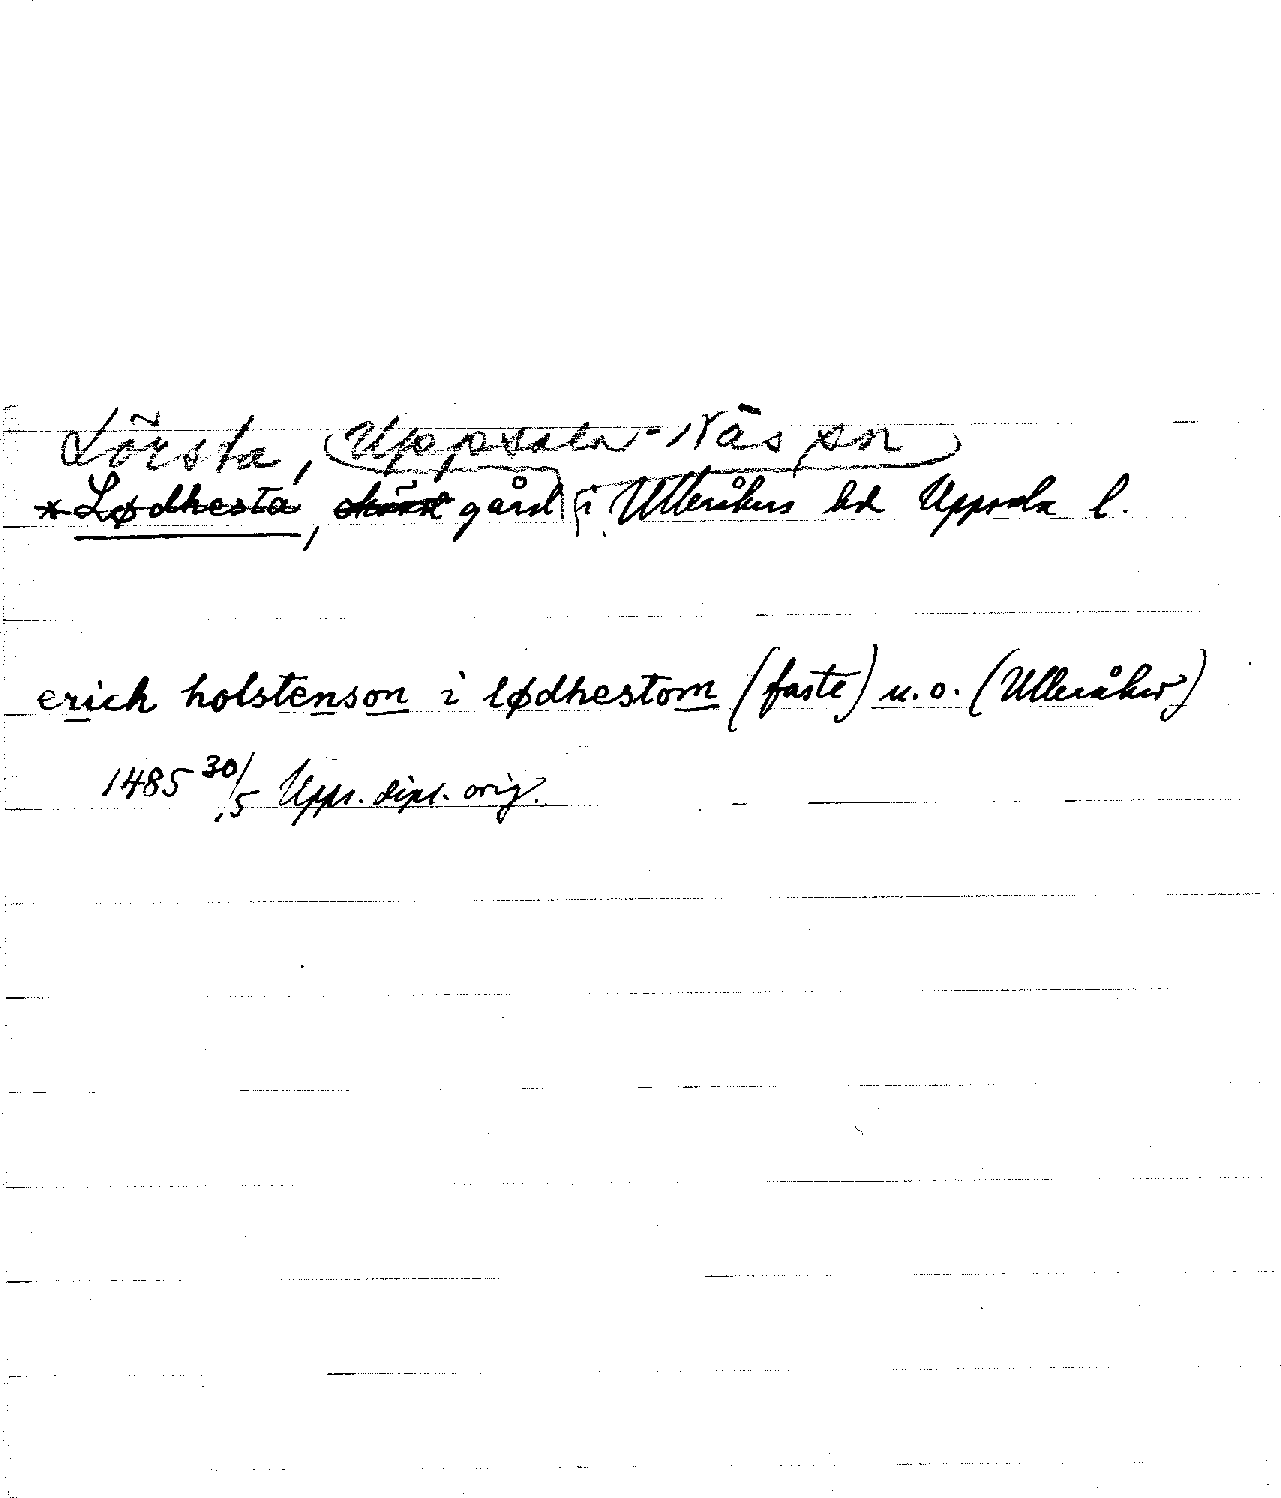 Lörsta, Uppsala-Näs sn
*Lødhesta, gård i Ulleråkers hd Uppsala l.
erich holstenson i lødhestom (faste) u.o. (Ulleråker)
1485 30/5 Upps. dipl. orig.